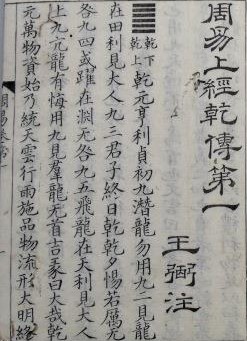 周易上經乾傳第一
王弼注
䷀
乾下
乾上
乾元亨利貞初九潛龍勿用九二見龍
在田利見大人九三君子終日乾乾夕惕若厲无
咎九四或躍在淵无咎九五飛龍在天利見大人
上九亢龍有悔用九見羣龍无首吉彖曰大哉乾
元萬物資始乃統天雲行雨施品物流形大明終